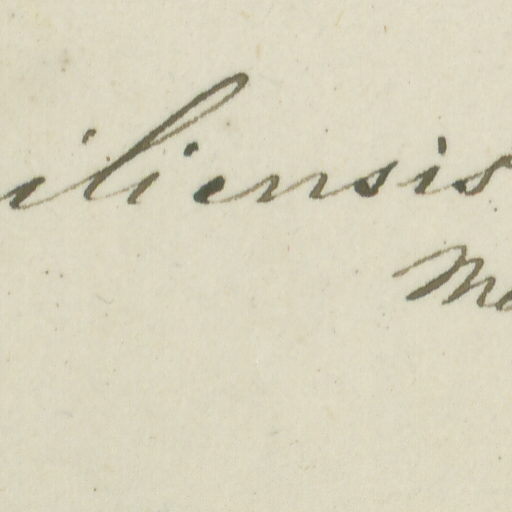 iliensis
Mo